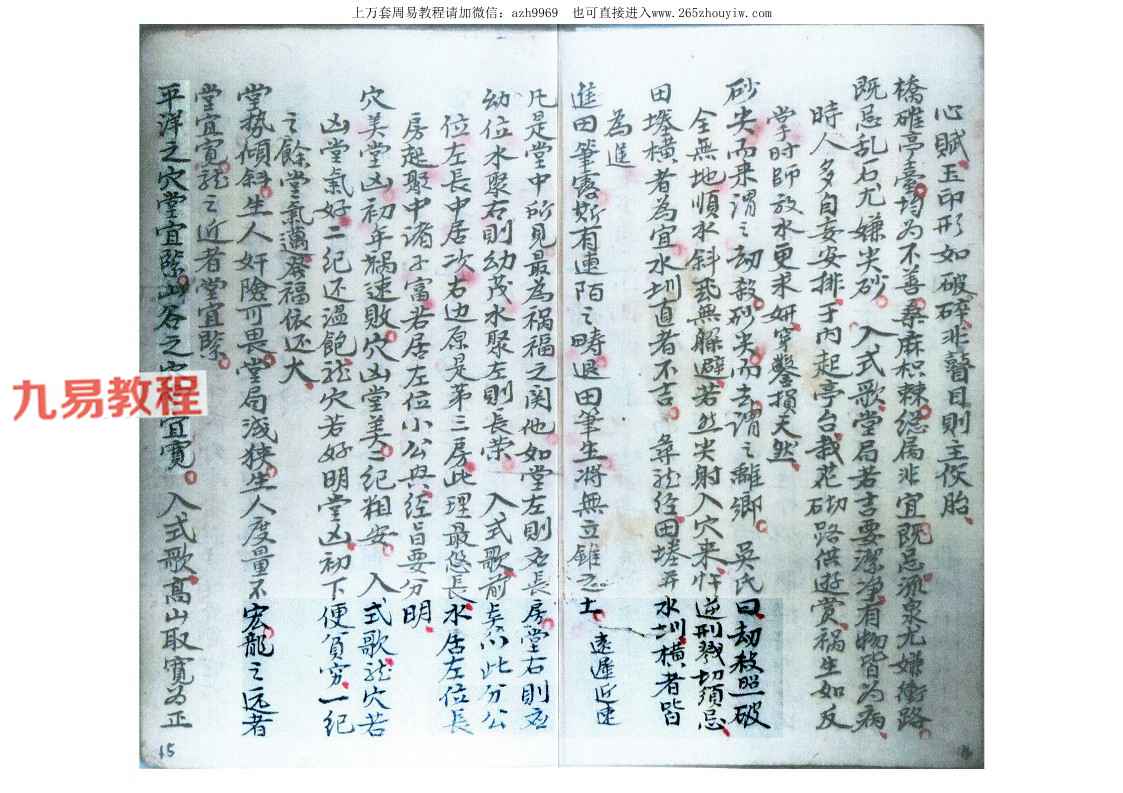 上万套周易教程请加微信：azh9969　也可直接进入www.265zhouyiw.com
心賦玉印形如破碎非瞽目則主伇胎
橋碓亭臺均為不善桑麻枳棘總屬非宜既忌流泉尤嫌衝路
既忌乱石尤嫌尖砂　入式歌堂局若言要潔净有物皆為病
時人多自妄安排于內起亭台栽花砌路供遊賞禍生如反
掌时師放水更求妍穿鑿損天然
砂尖而来謂之劫殺砂尖而去謂之離鄉　吳氏曰劫殺照破
全無地順水斜飛無躲避若然尖射入穴来忤逆刑戮切須忌
田塍橫者為宜水圳直者不吉　尋龍经田塍并水圳橫者皆
為進
進田筆露斯有連陌之畴退田筆生将無立錐之土　遠遲近速
凡是堂中所見最為禍福之関他如堂左則应長房堂右則应
幼位水聚右則幼茂水聚左則長荣　入式歌前㸃以此分公
位左長中居次右边原是第三房此理最悠長水居左位長
房起聚中诸子富若居左位小公興经旨要分明
穴美堂凶初年禍速敗穴凶堂美二紀粗安　入式歌龍穴若
凶堂氣好二纪还温飽龍穴若好明堂凶初下便貧穷一紀
之餘堂氣邁發福依还大
堂势傾斜生人奸險可畏堂局淺狹生人度量不宏龍之远者
堂宜寬龍之近者堂宜緊
平洋之穴堂宜緊山谷之宜寬　入式歌高山取寬为正
九易教程
15